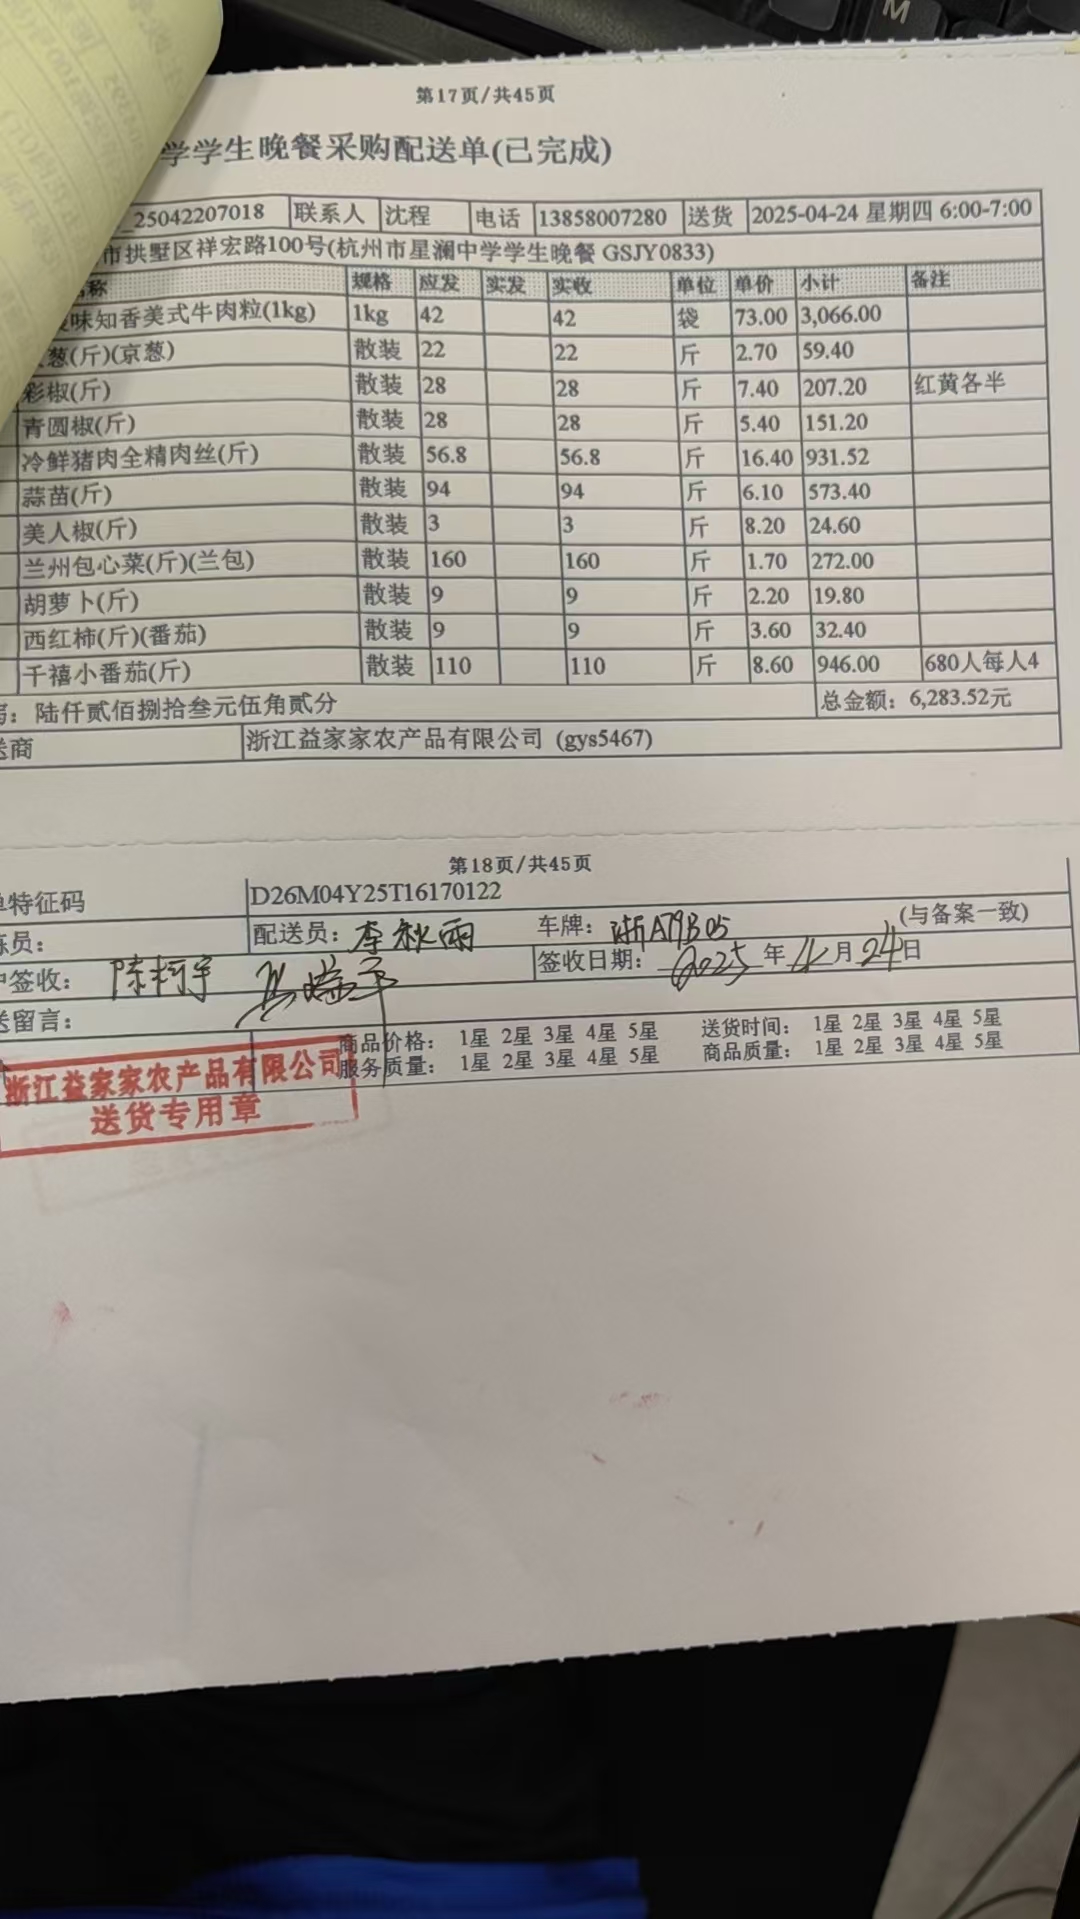 第17页/共45页
学学生晚餐采购配送单(已完成)
_25042207018 联系人 沈程 电话 13858007280 送货 2025-04-24 星期四 6:00-7:00
市拱墅区祥宏路100号(杭州市星澜中学学生晚餐 GSJY0833)
名称 规格 应发 实发 实收 单位 单价 小计 备注
味知香美式牛肉粒(1kg) 1kg 42 42 袋 73.00 3,066.00
葱(斤)(京葱) 散装 22 22 斤 2.70 59.40
彩椒(斤) 散装 28 28 斤 7.40 207.20 红黄各半
青圆椒(斤) 散装 28 28 斤 5.40 151.20
冷鲜猪肉全精肉丝(斤) 散装 56.8 56.8 斤 16.40 931.52
蒜苗(斤) 散装 94 94 斤 6.10 573.40
美人椒(斤) 散装 3 3 斤 8.20 24.60
兰州包心菜(斤)(兰包) 散装 160 160 斤 1.70 272.00
胡萝卜(斤) 散装 9 9 斤 2.20 19.80
西红柿(斤)(番茄) 散装 9 9 斤 3.60 32.40
千禧小番茄(斤) 散装 110 110 斤 8.60 946.00 680人每人4
写：陆仟贰佰捌拾叁元伍角贰分 总金额：6,283.52元
送商 浙江益家家农产品有限公司 (gys5467)
第18页/共45页
单特征码 D26M04Y25T16170122
员： 配送员：李秋雨 车牌：浙A79B05 (与备案一致)
户签收：陈柯宇 签收日期：2025年4月24日
送留言：
商品价格： 1星 2星 3星 4星 5星 送货时间： 1星 2星 3星 4星 5星
服务质量： 1星 2星 3星 4星 5星 商品质量： 1星 2星 3星 4星 5星
浙江益家家农产品有限公司
送货专用章
M